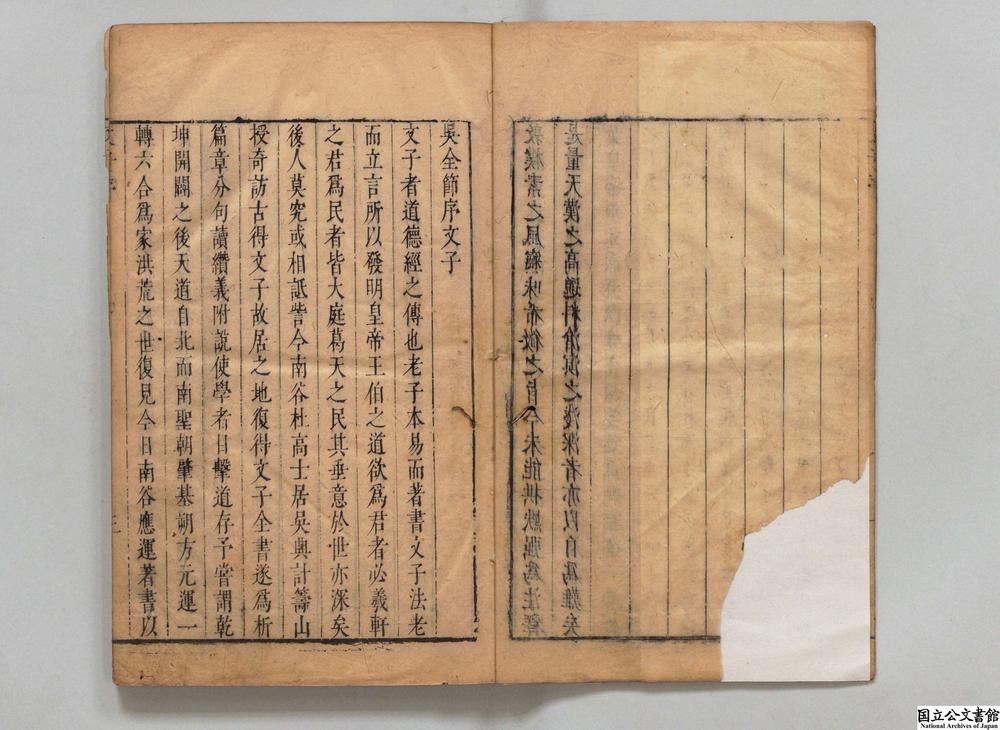 敦樸素之風竊味希微之旨今未能拱默强為注釋
是量天漢之高邈料滄溟之淺深者亦以自為難矣
吳全節序文子
文子者道德經之傳也老子本易而著書文子法老
而立言所以發明皇帝王伯之道欲爲君者必羲軒
之君爲民者皆大庭葛天之民其垂意於世亦深矣
後人莫究或相詆訾今南谷杜高士居吳興計籌山
授奇訪古得文子故居之地復得文子全書遂爲析
篇章分句讀纘義附說使學者目擊道存予嘗謂乾
坤開闢之後天道自北而南聖朝肇基朔方元運一
轉六合爲家洪荒之世復見今日南谷應運著書以
国立公文書館
National Archives of Japan